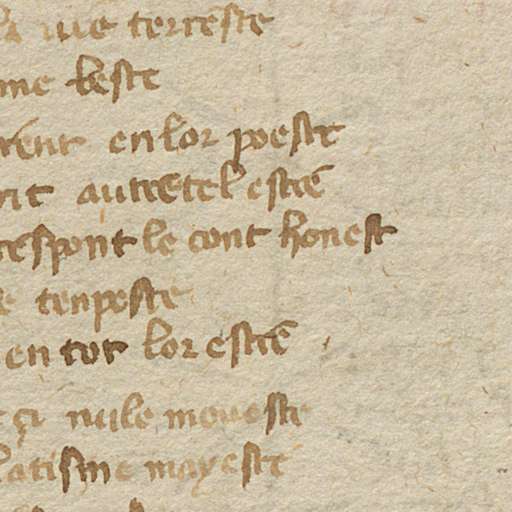 vie terreste
me beste
rent en lor poeste
rit autretel estre
respont le cont honest
e tenpeste
en tot lor estre
ci nule moveste
latisme mayeste